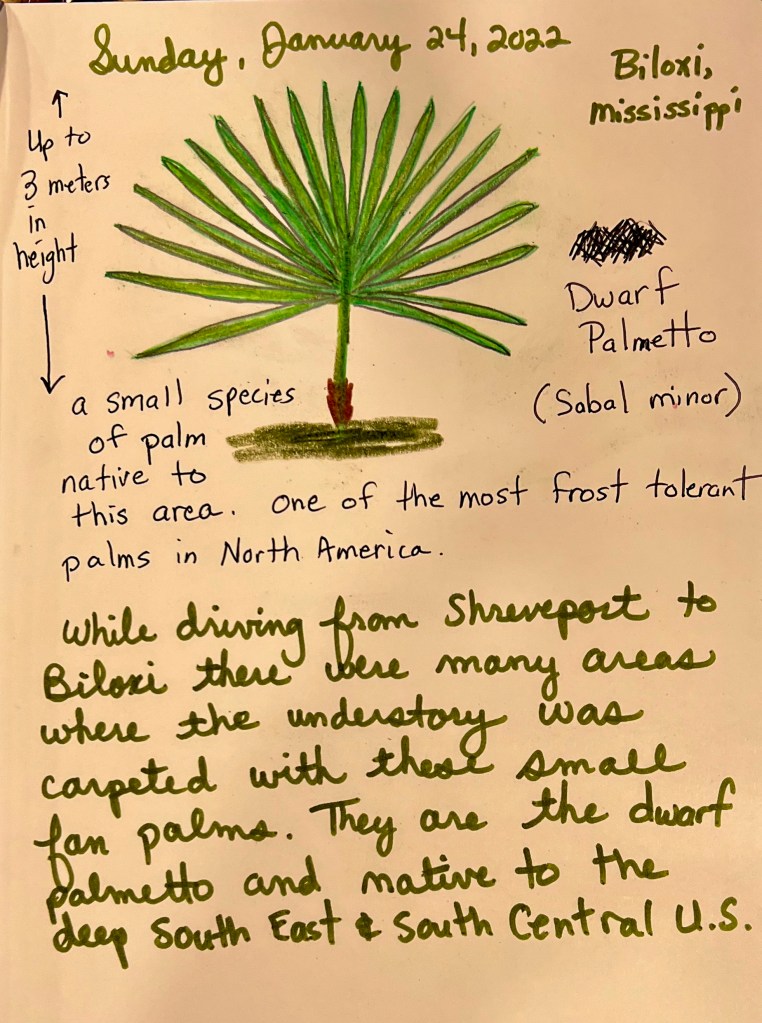 Sunday, January 24, 2022
Biloxi,
Mississippi
↑
Up to
3 meters
in
height
↓
Dwarf
Palmetto
(Sabal minor)
a small species
of palm
native to
this area. One of the most frost tolerant
palms in North America.
While driving from Shreveport to
Biloxi there were many areas
where the understory was
carpeted with these small
fan palms. They are the dwarf
palmetto and native to the
deep South East & South Central U.S.